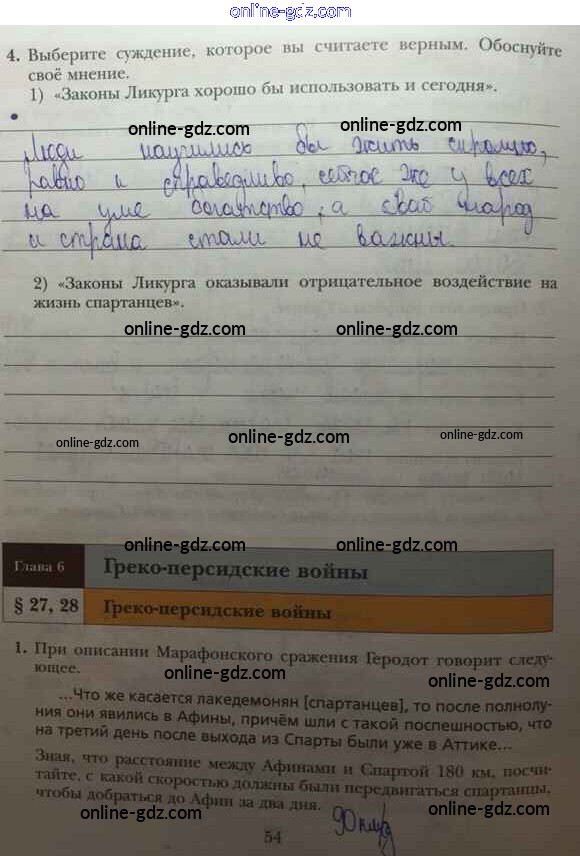 online-gdz.com
4. Выберите суждение, которое вы считаете верным. Обоснуйте
своё мнение.
1) «Законы Ликурга хорошо бы использовать и сегодня».
online-gdz.com online-gdz.com
Люди научились бы жить скромно,
равно и справедливо, сейчас же у всех
online-gdz.com online-gdz.com
на уме богатство, а свой народ
и страна стали не важны.
2) «Законы Ликурга оказывали отрицательное воздействие на
жизнь спартанцев».
online-gdz.com online-gdz.com
online-gdz.com online-gdz.com online-gdz.com
online-gdz.com online-gdz.com
Глава 6 Греко-персидские войны
§ 27, 28 Греко-персидские войны
1. При описании Марафонского сражения Геродот говорит следу-
ющее.
online-gdz.com online-gdz.com
...Что же касается лакедемонян [спартанцев], то после полнолу-
ния они явились в Афины, причём шли с такой поспешностью, что
на третий день после выхода из Спарты были уже в Аттике...
Зная, что расстояние между Афинами и Спартой 180 км, посчи-
тайте, с какой скоростью должны были передвигаться спартанцы,
чтобы добраться до Афин за два дня.
online-gdz.com online-gdz.com
54